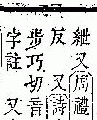 紲又周禮
又詩
步巧切音
字註又